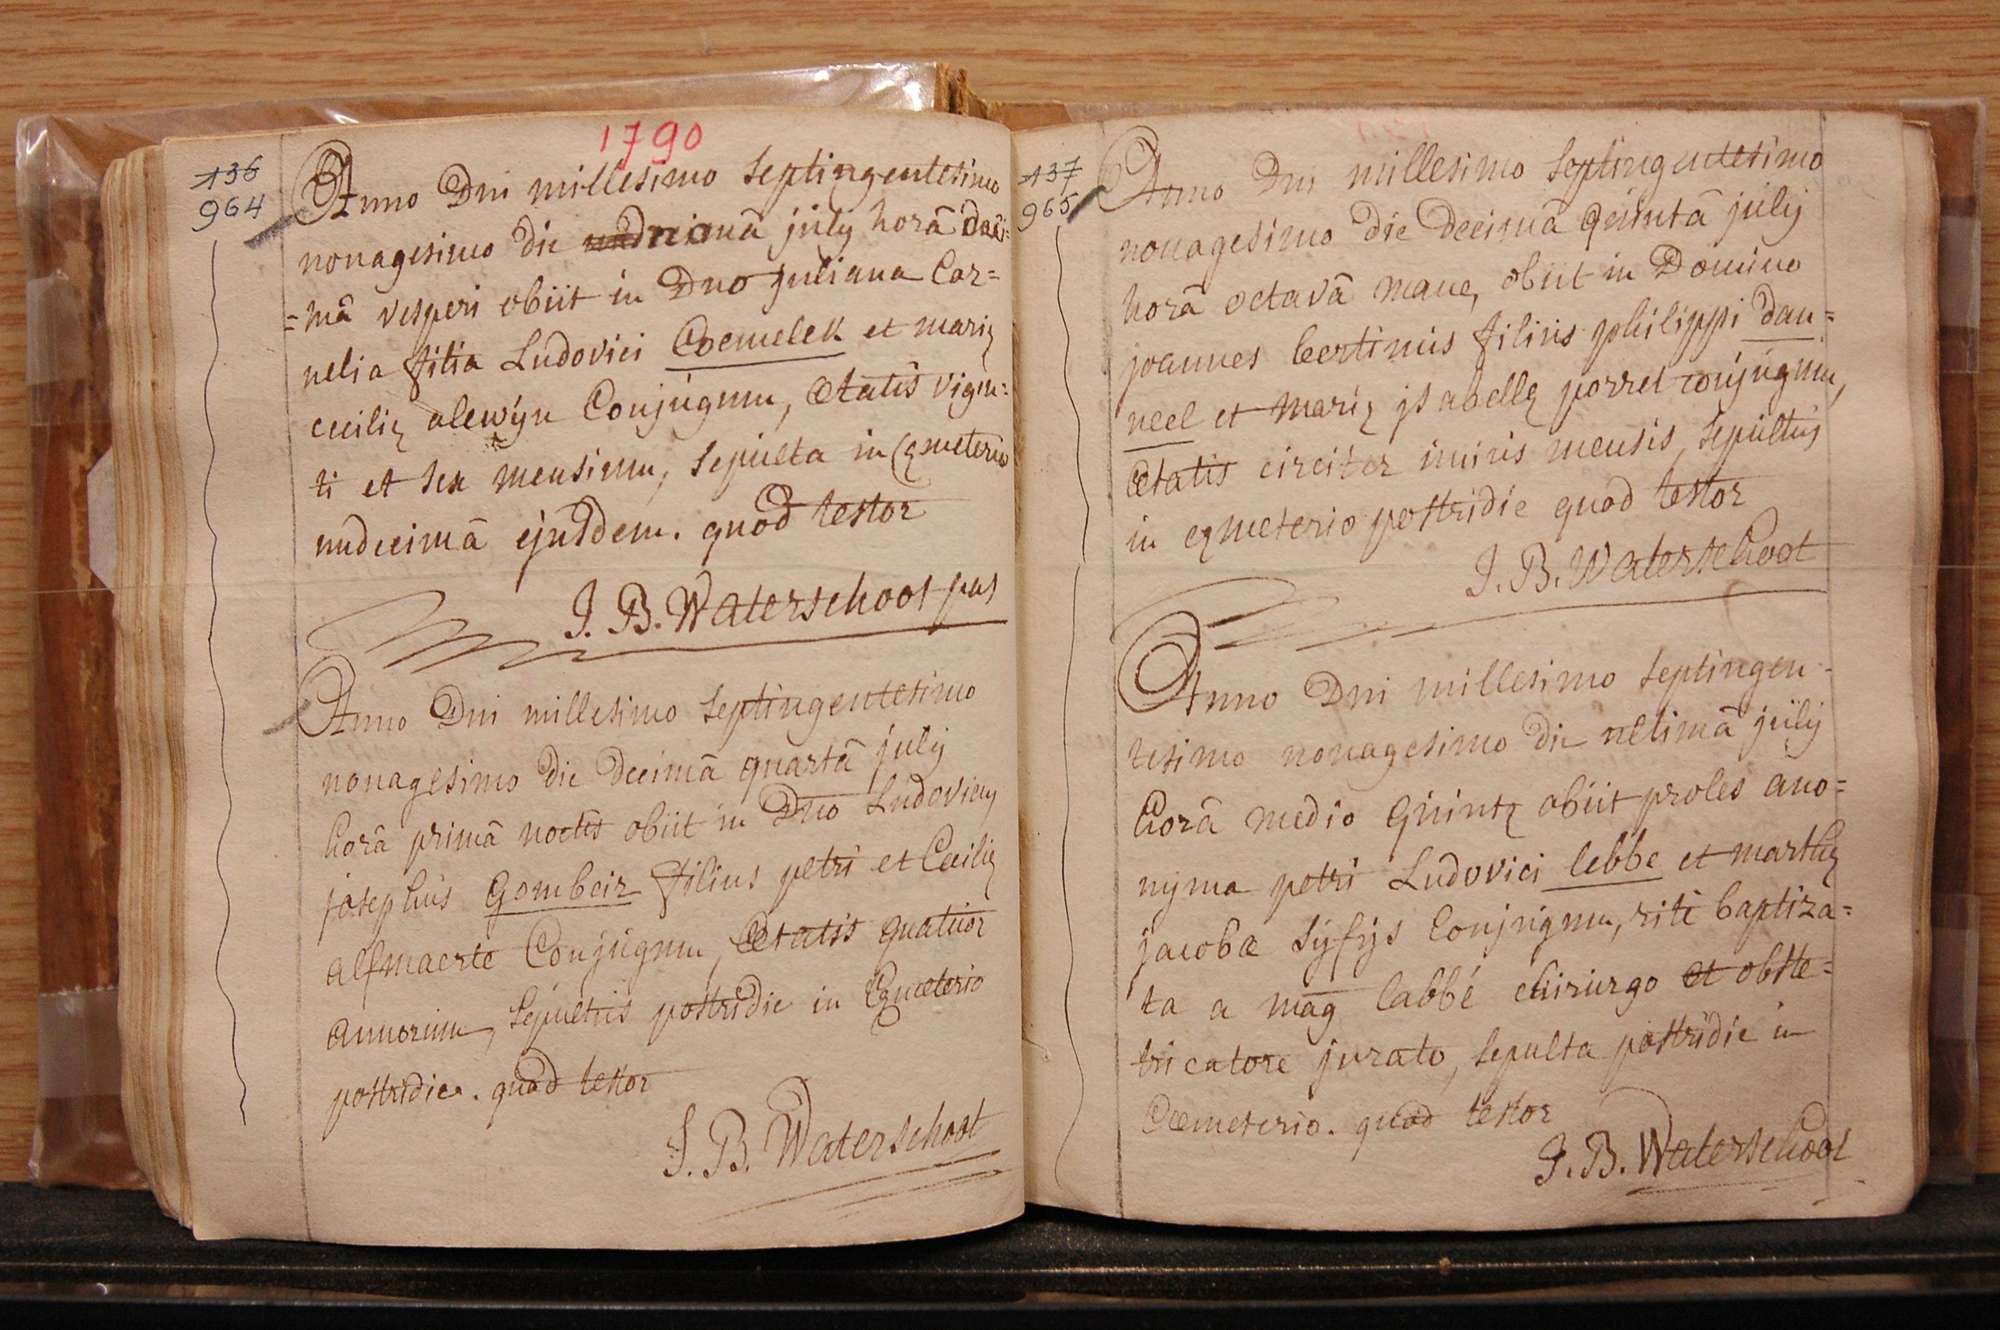 1790
136
964
Anno Dni millesimo septingentesimo
nonagesimo die julij horâ deci=
=mâ vesperi obiit in Dno juliana Cor=
nelia filia Ludovici Coemelck et mariȩ
ceciliȩ alewijn Conjugum, Ætatis vigin=
ti et sex mensium, sepulta in Cȩmeterio
undecimâ ejusdem. quod testor
J. B. Waterschoot pas
Anno Dni millesimo septingentesimo
nonagesimo die decimâ quartâ julij
horâ primâ noctis obiit in Dno Ludovicus
josephus Gombeir filius petri et Ceciliȩ
alsmaerte Conjugum, Ætatis quatuor
annorum, sepultus postridie in Cȩmeterio
postridie. quod testor
J. B. Waterschoot
137
965
Anno Dni millesimo septingentesimo
nonagesimo die decimâ quintâ julij
horâ octavâ mane, obiit in Domino
joannes bertinus filius philippi dan=
neel et mariȩ jsabellȩ porret conjugum,
Ætatis circiter unius mensis, sepultus
in cȩmeterio postridie quod testor
J. B. Waterschoot
Anno Dni millesimo septingen-
tesimo nonagesimo die ultimâ julij
horâ medio quintȩ obiit proles ano=
nyma petri Ludovici lebbe et marthȩ
jacobæ sijssijs Conjugum, rité baptiza=
ta a mag labbé chirurgo et obste=
tricatore jurato, sepulta postridie in
Cœmeterio. quod testor
J. B. Waterschoot